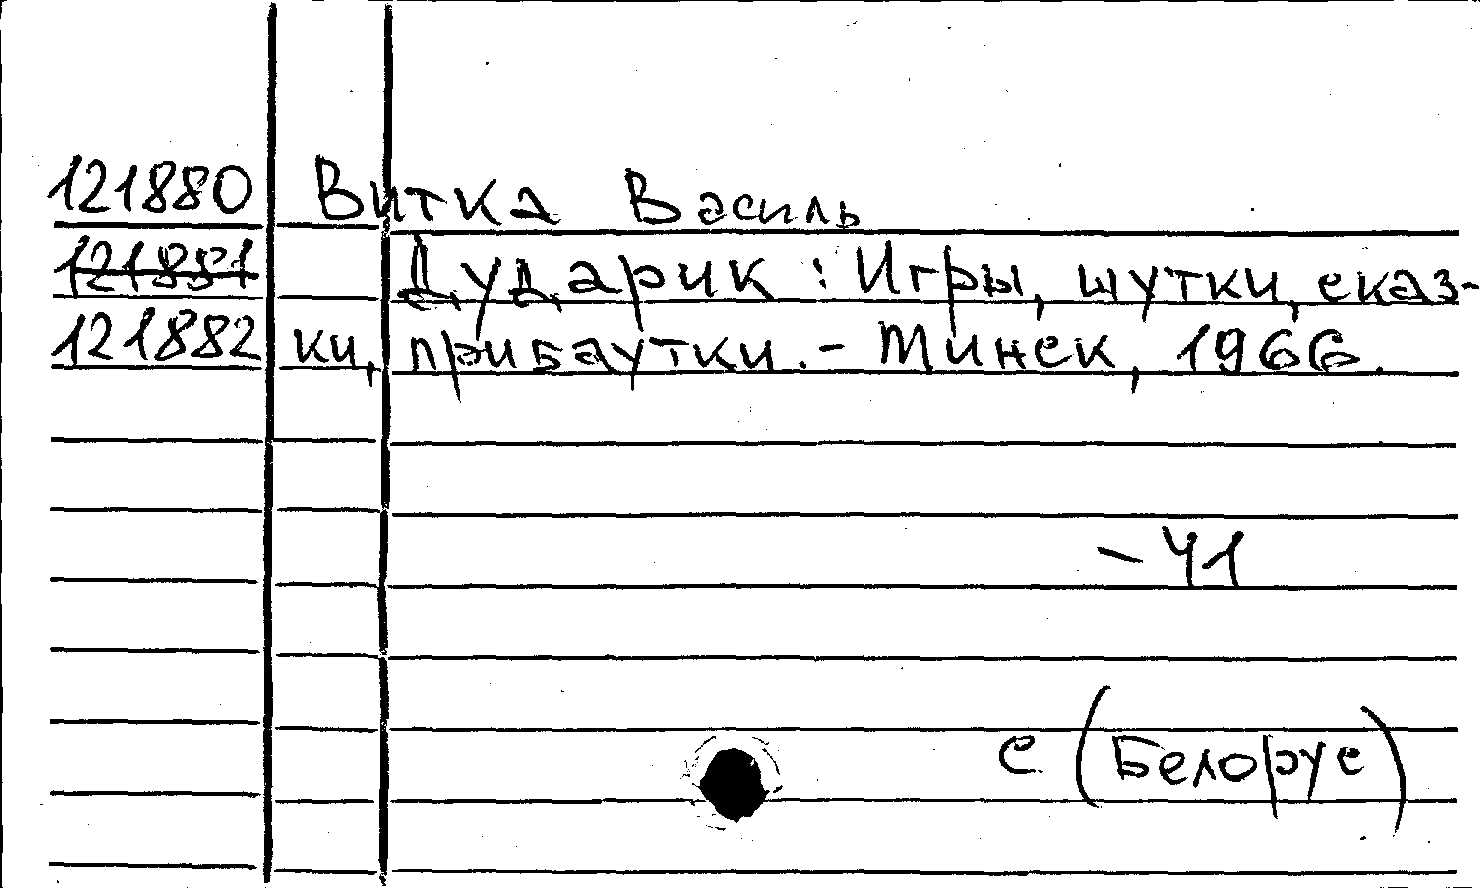 121880 Витка Василь
121881 Дударик : Игры, шутки, сказ-
121882 ки, прибаутки. - Минск, 1966.
- Ч1
С (Белорус)